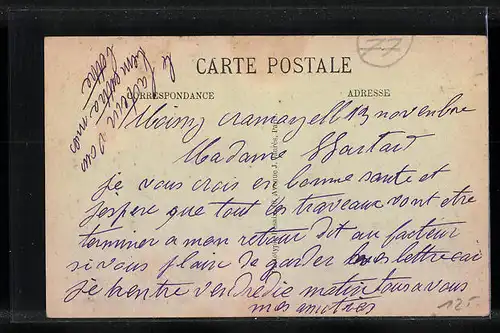 77
CARTE POSTALE
CORRESPONDANCE
ADRESSE
Moissy cramayell 13 novenbre
Madame
je vous crois en bonne sante et
j'espère que tout les travaux vont etre
terminer a mon retour dit au facteur
si vous plaise de garder lettre cai
je rentre vendredie matin tous a vous
mes amities
le
vous
votre
125